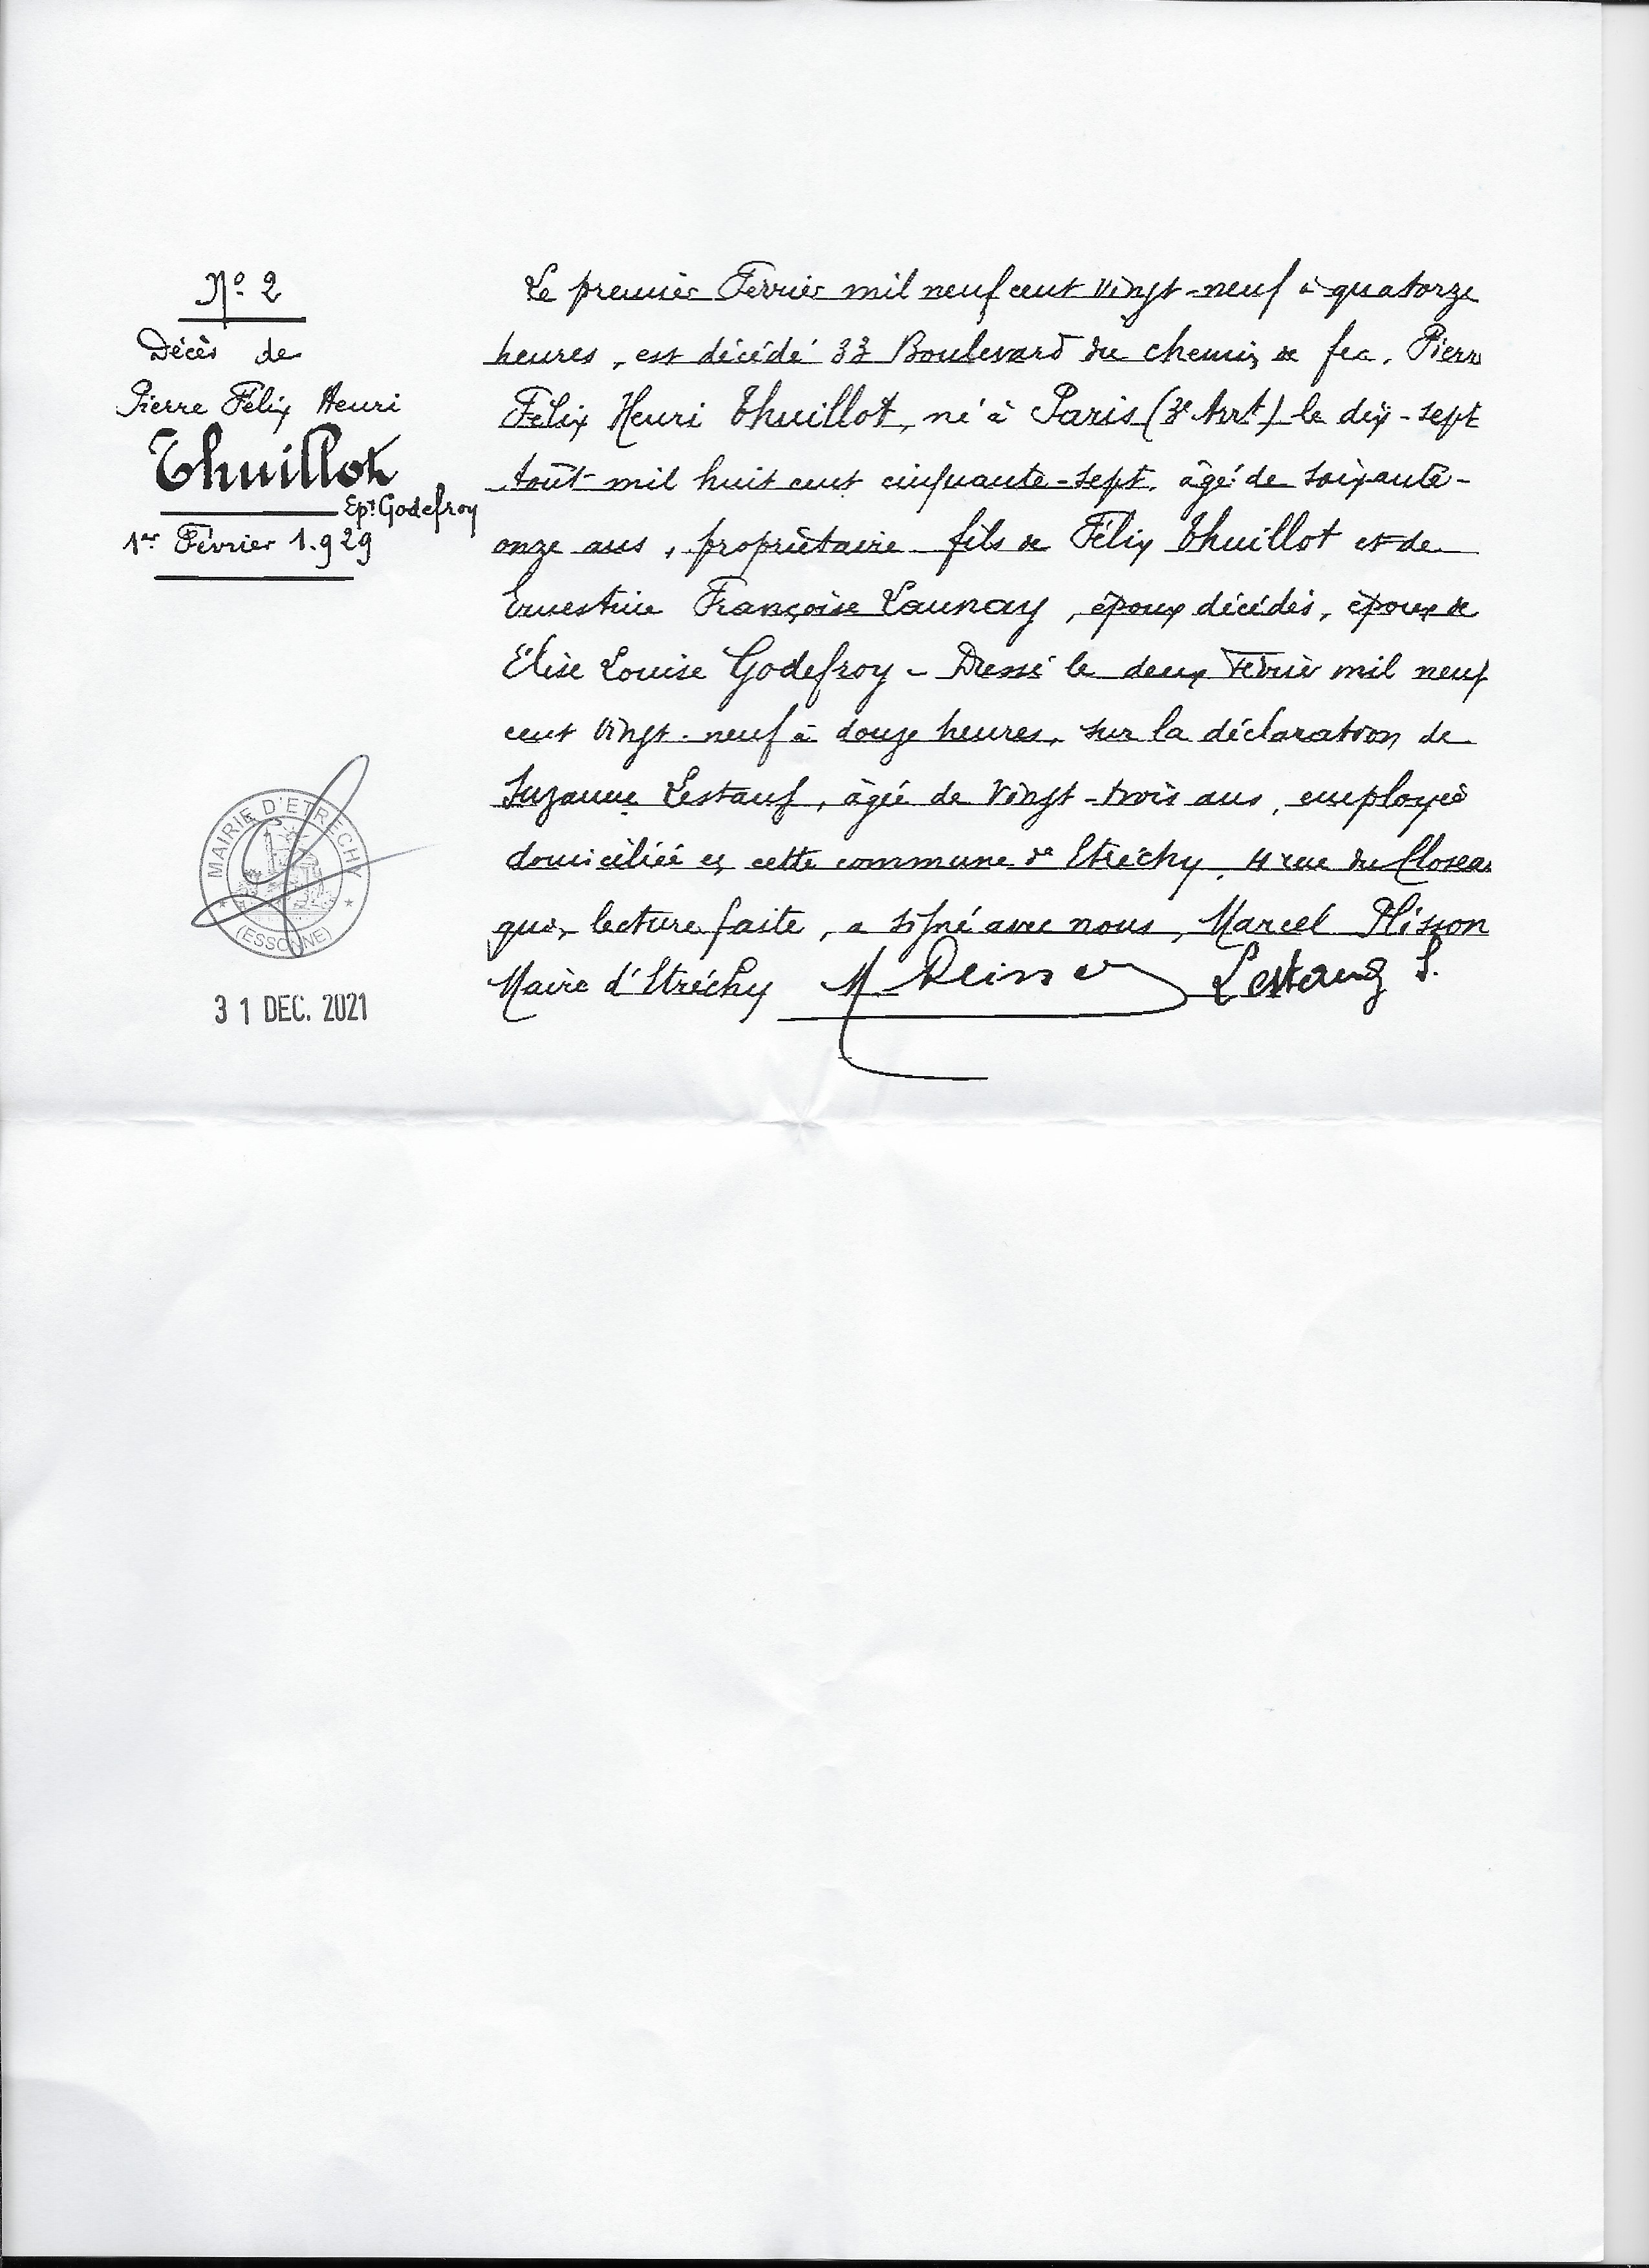 N° 2
Décès de
Pierre Félix Henri
Thuillot
Ept Godefroy
1er Février 1.929
Le premier Février mil neuf cent vingt-neuf à quatorze
heures, est décédé 33 Boulevard du chemin de fer, Pierre
Félix Henri Thuillot, né à Paris (3e Arrt) le dix-sept
Août mil huit cent cinquante-sept, âgé de soixante-
onze ans, propriétaire fils de Félix Thuillot et de
Ernestine Françoise Launay, époux décédés, époux de
Elise Louise Godefroy - Dressé le deux Février mil neuf
cent vingt-neuf à douze heures, sur la déclaration de
Suzanne Lestang, âgée de vingt-trois ans, employée
domiciliée en cette commune de Etréchy, 4 rue du Closeau
qui, lecture faite, a signé avec nous, Marcel Plisson
Maire d'Etréchy M Plisson Lestang S.
MAIRIE D'ETRECHY
(ESSONNE)
31 DEC. 2021